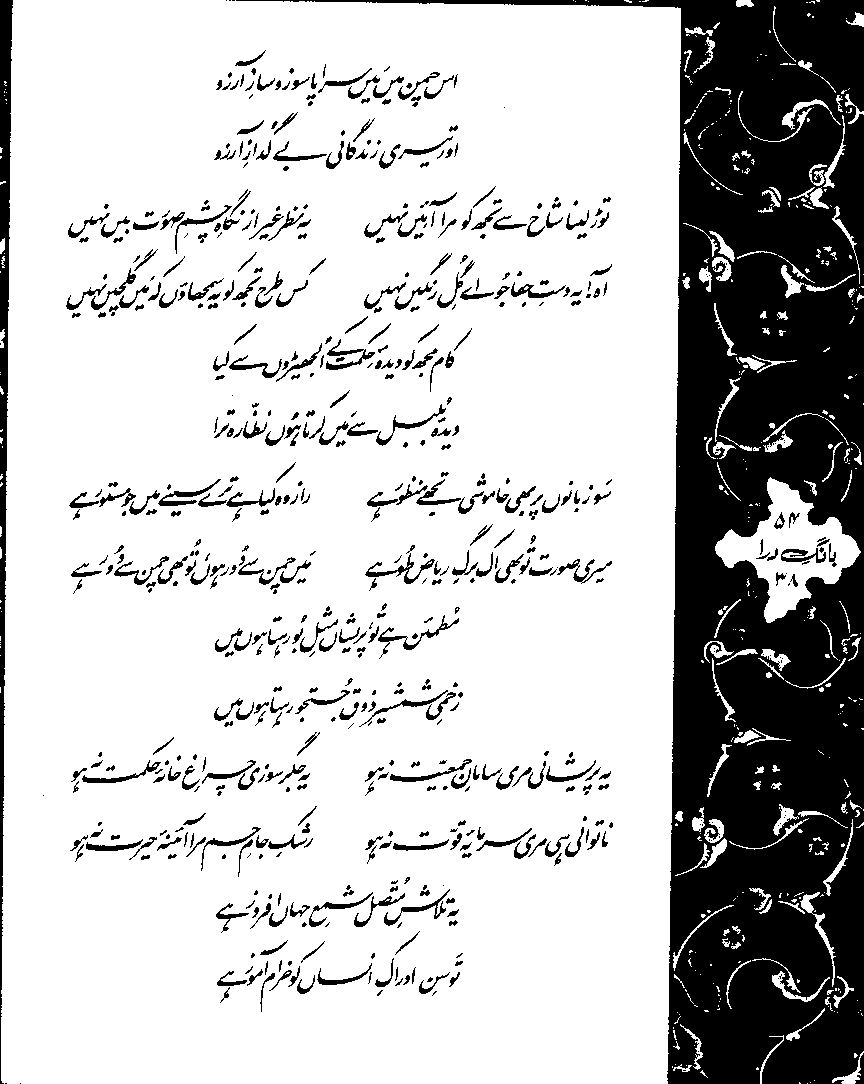 اس چمن میں مَیں سراپا سوز و سازِ آرزو
اور تیری زندگانی بے گدازِ آرزو
توڑ لینا شاخ سے تجھ کو مرا آئیں نہیں یہ نظر غیر از نگاہِ چشمِ صوُرت بیں نہیں
آہ! یہ دستِ جفا جُو اے گُلِ رنگیں نہیں کس طرح تجھ کو یہ سمجھاؤں کہ مَیں گُلچیں نہیں
کام مجھ کو دیدۂ حِکمت کے اُلجھیڑوں سے کیا
دیدۂ بُلبل سے مَیں کرتا ہوُں نظّارہ ترا
سَو زبانوں پر بھی خاموشی تجھے منظوُر ہے راز وہ کیا ہے ترے سینے میں جو مستوُر ہے
میری صورت تُو بھی اک برگِ ریاضِ طوُر ہے مَیں چمن سے دُور ہوں تُو بھی چمن سے دُور ہے
مُطمئن ہے تُو، پریشاں مثلِ بُو رہتا ہوں مَیں
زخمیِ شمشیرِ ذوقِ جُستجو رہتا ہوں مَیں
یہ پریشانی مری سامانِ جمعیّت نہ ہو یہ جگر سوزی چراغِ خانۂ حکمت نہ ہو
ناتوانی ہی مری سرمایۂ قوّت نہ ہو رشکِ جامِ جم مرا آئینۂ حیرت نہ ہو
یہ تلاشِ مُتّصل شمعِ جہاں افروز ہے
تَوسنِ ادراکِ انساں کو خرام آموز ہے
۵۴
بانگِ درا
۳۸